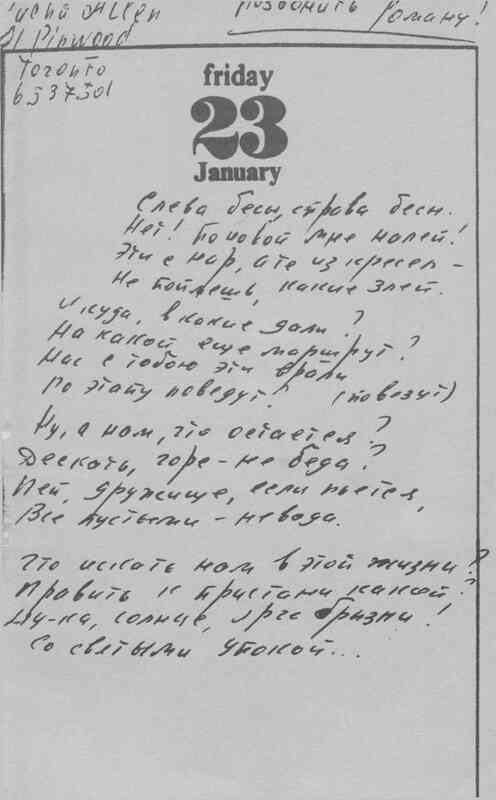 Allen
Позвонить Роману!
Pinwood
Toronto
6537501
friday
23
January
Слева бесы, справа бесы.
Нет! По новой мне налей!
Эти с нар, а те из кресел –
Не поймешь, какие злей.
И куда, в какие дали?
На какой еще маршрут?
Нас с тобою эти врали
По этапу поведут? (повезут)
Ну, а нам, что остается?
Дескать, горе – не беда?
Пей, дружище, если пьется,
Все пустыми – невода.
Что искать нам в этой жизни?
Править к пристани какой?
Ну-ка, солнце, ярче брызни!
Со святыми упокой...